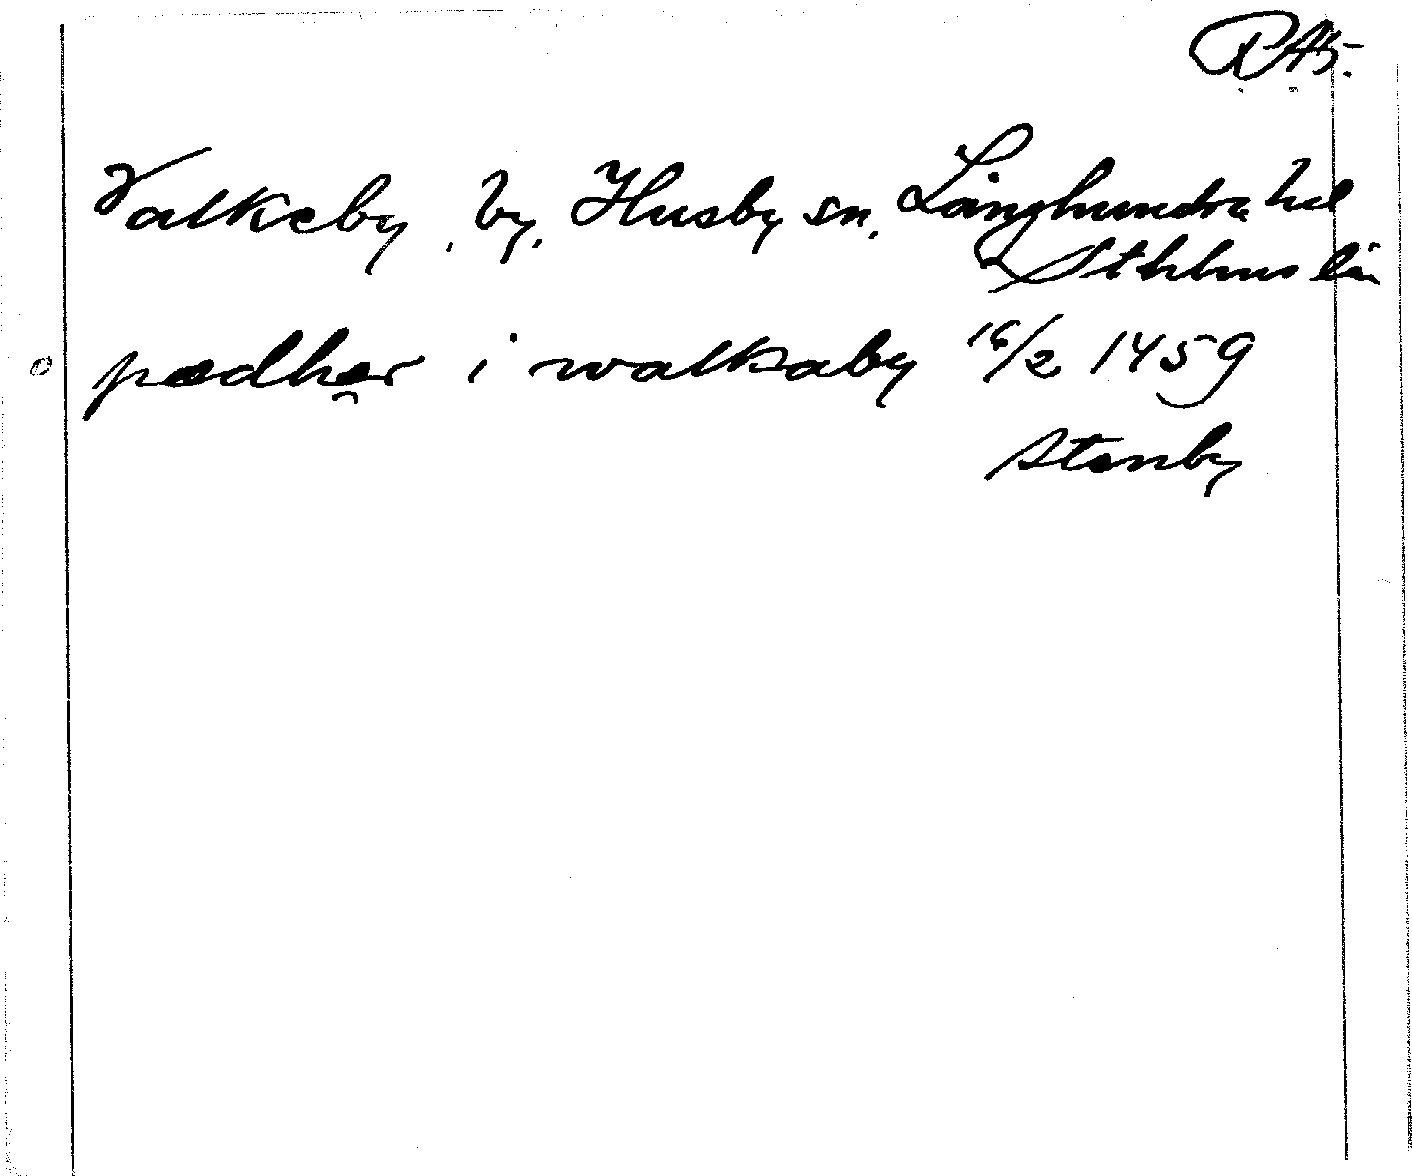 RAp.
Valkeby, by, Husby sn, Långhundra hd
Sthlms län
pædhær i walkaby 16/2 1459
Stenby